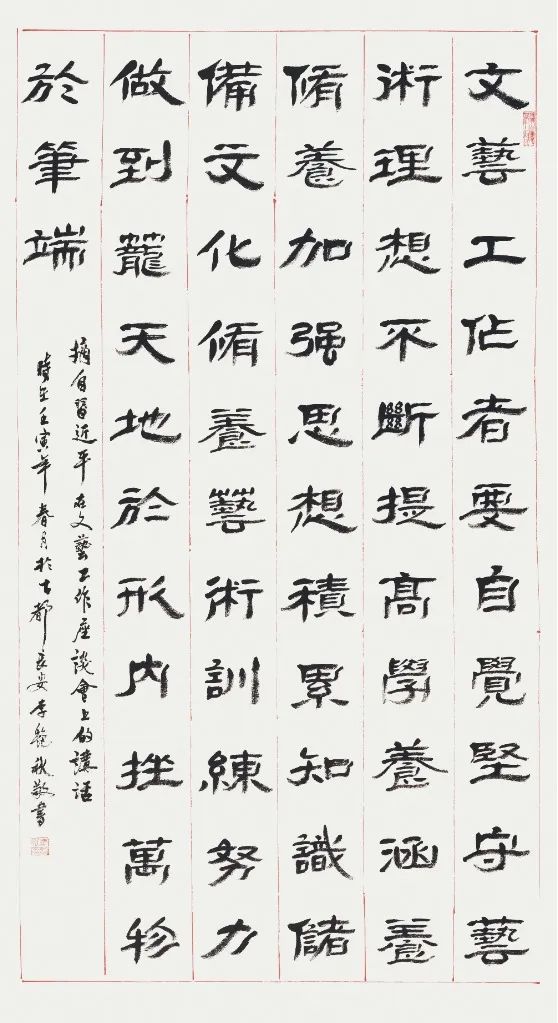 文藝工作者要自覺堅守藝
術理想不斷提高學養涵養
脩養加强思想積累知識儲
備文化脩養藝術訓練努力
做到籠天地於形内挫萬物
於筆端
摘自習近平在文藝工作座談會上的講話
時在壬寅年春月於古都長安李秋敬書